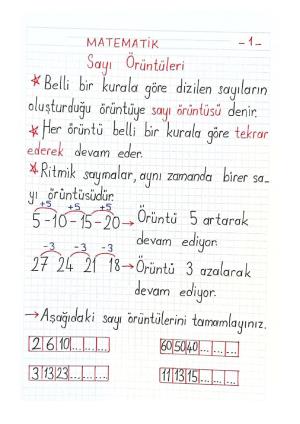 MATEMATİK -1-
Sayı Örüntüleri
* Belli bir kurala göre dizilen sayıların
oluşturduğu örüntüye sayı örüntüsü denir.
* Her örüntü belli bir kurala göre tekrar
ederek devam eder.
* Ritmik saymalar, aynı zamanda birer sa-
yı örüntüsüdür.
+5 +5 +5
5-10-15-20→Örüntü 5 artarak
devam ediyor.
-3 -3 -3
27 24 21 18→Örüntü 3 azalarak
devam ediyor.
→Aşağıdaki sayı örüntülerini tamamlayınız.
2 6 10 ... ... ... 60 50 40 ... ... ...
3 13 23 ... ... ... 11 13 15 ... ... ...